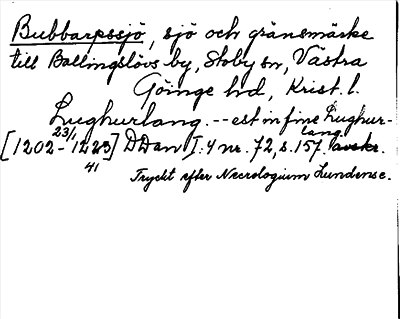 Bubbarpssjö, sjö och gränsmärke
till Ballingslövs by, Stoby sn, Västra
Göinge hd, Krist. l.
Lughurlang. -- est in fine Lughur-
lang
[1202-23/1 1223] DDan I:4 nr. 72, s. 157. avskr.
41
Tryckt efter Necrologium Lundense.